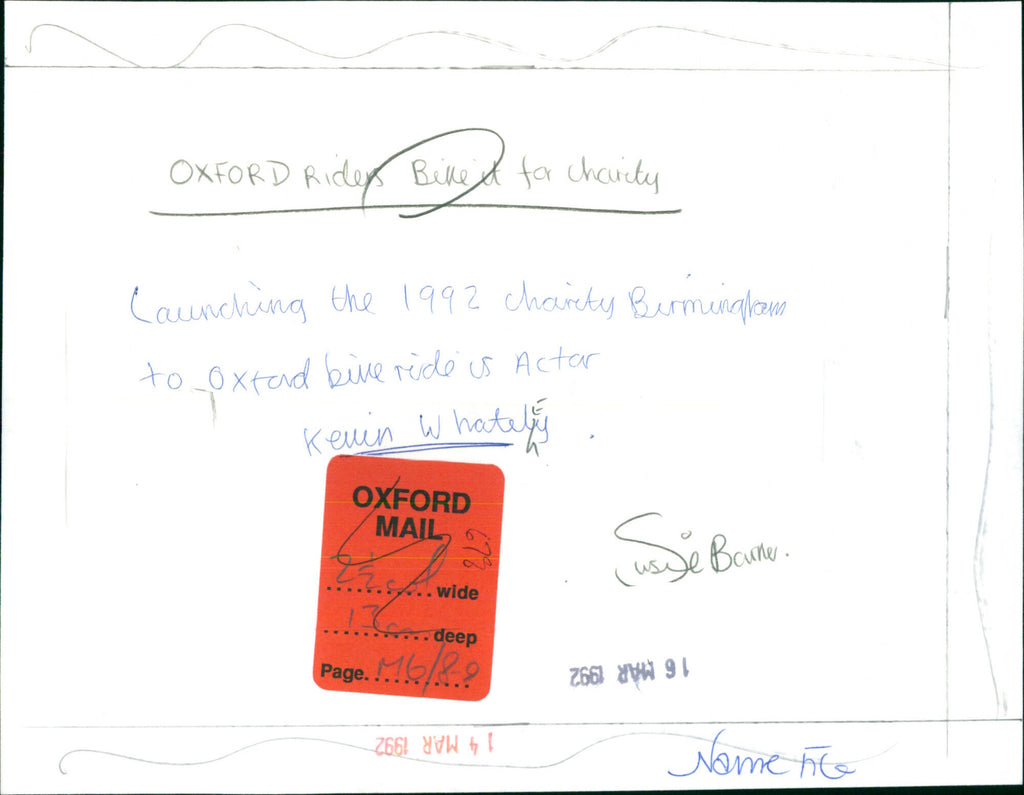 OXFORD Riders Bike it for charity
Launching the 1992 charity Birmingham
to Oxford bike ride is Actor
Kevin Whately.
E
OXFORD
MAIL
678
2½ col wide
13cm deep
Page. M6/8-9
Susie Barker.
16 MAR 1992
14 MAR 1992
Name File